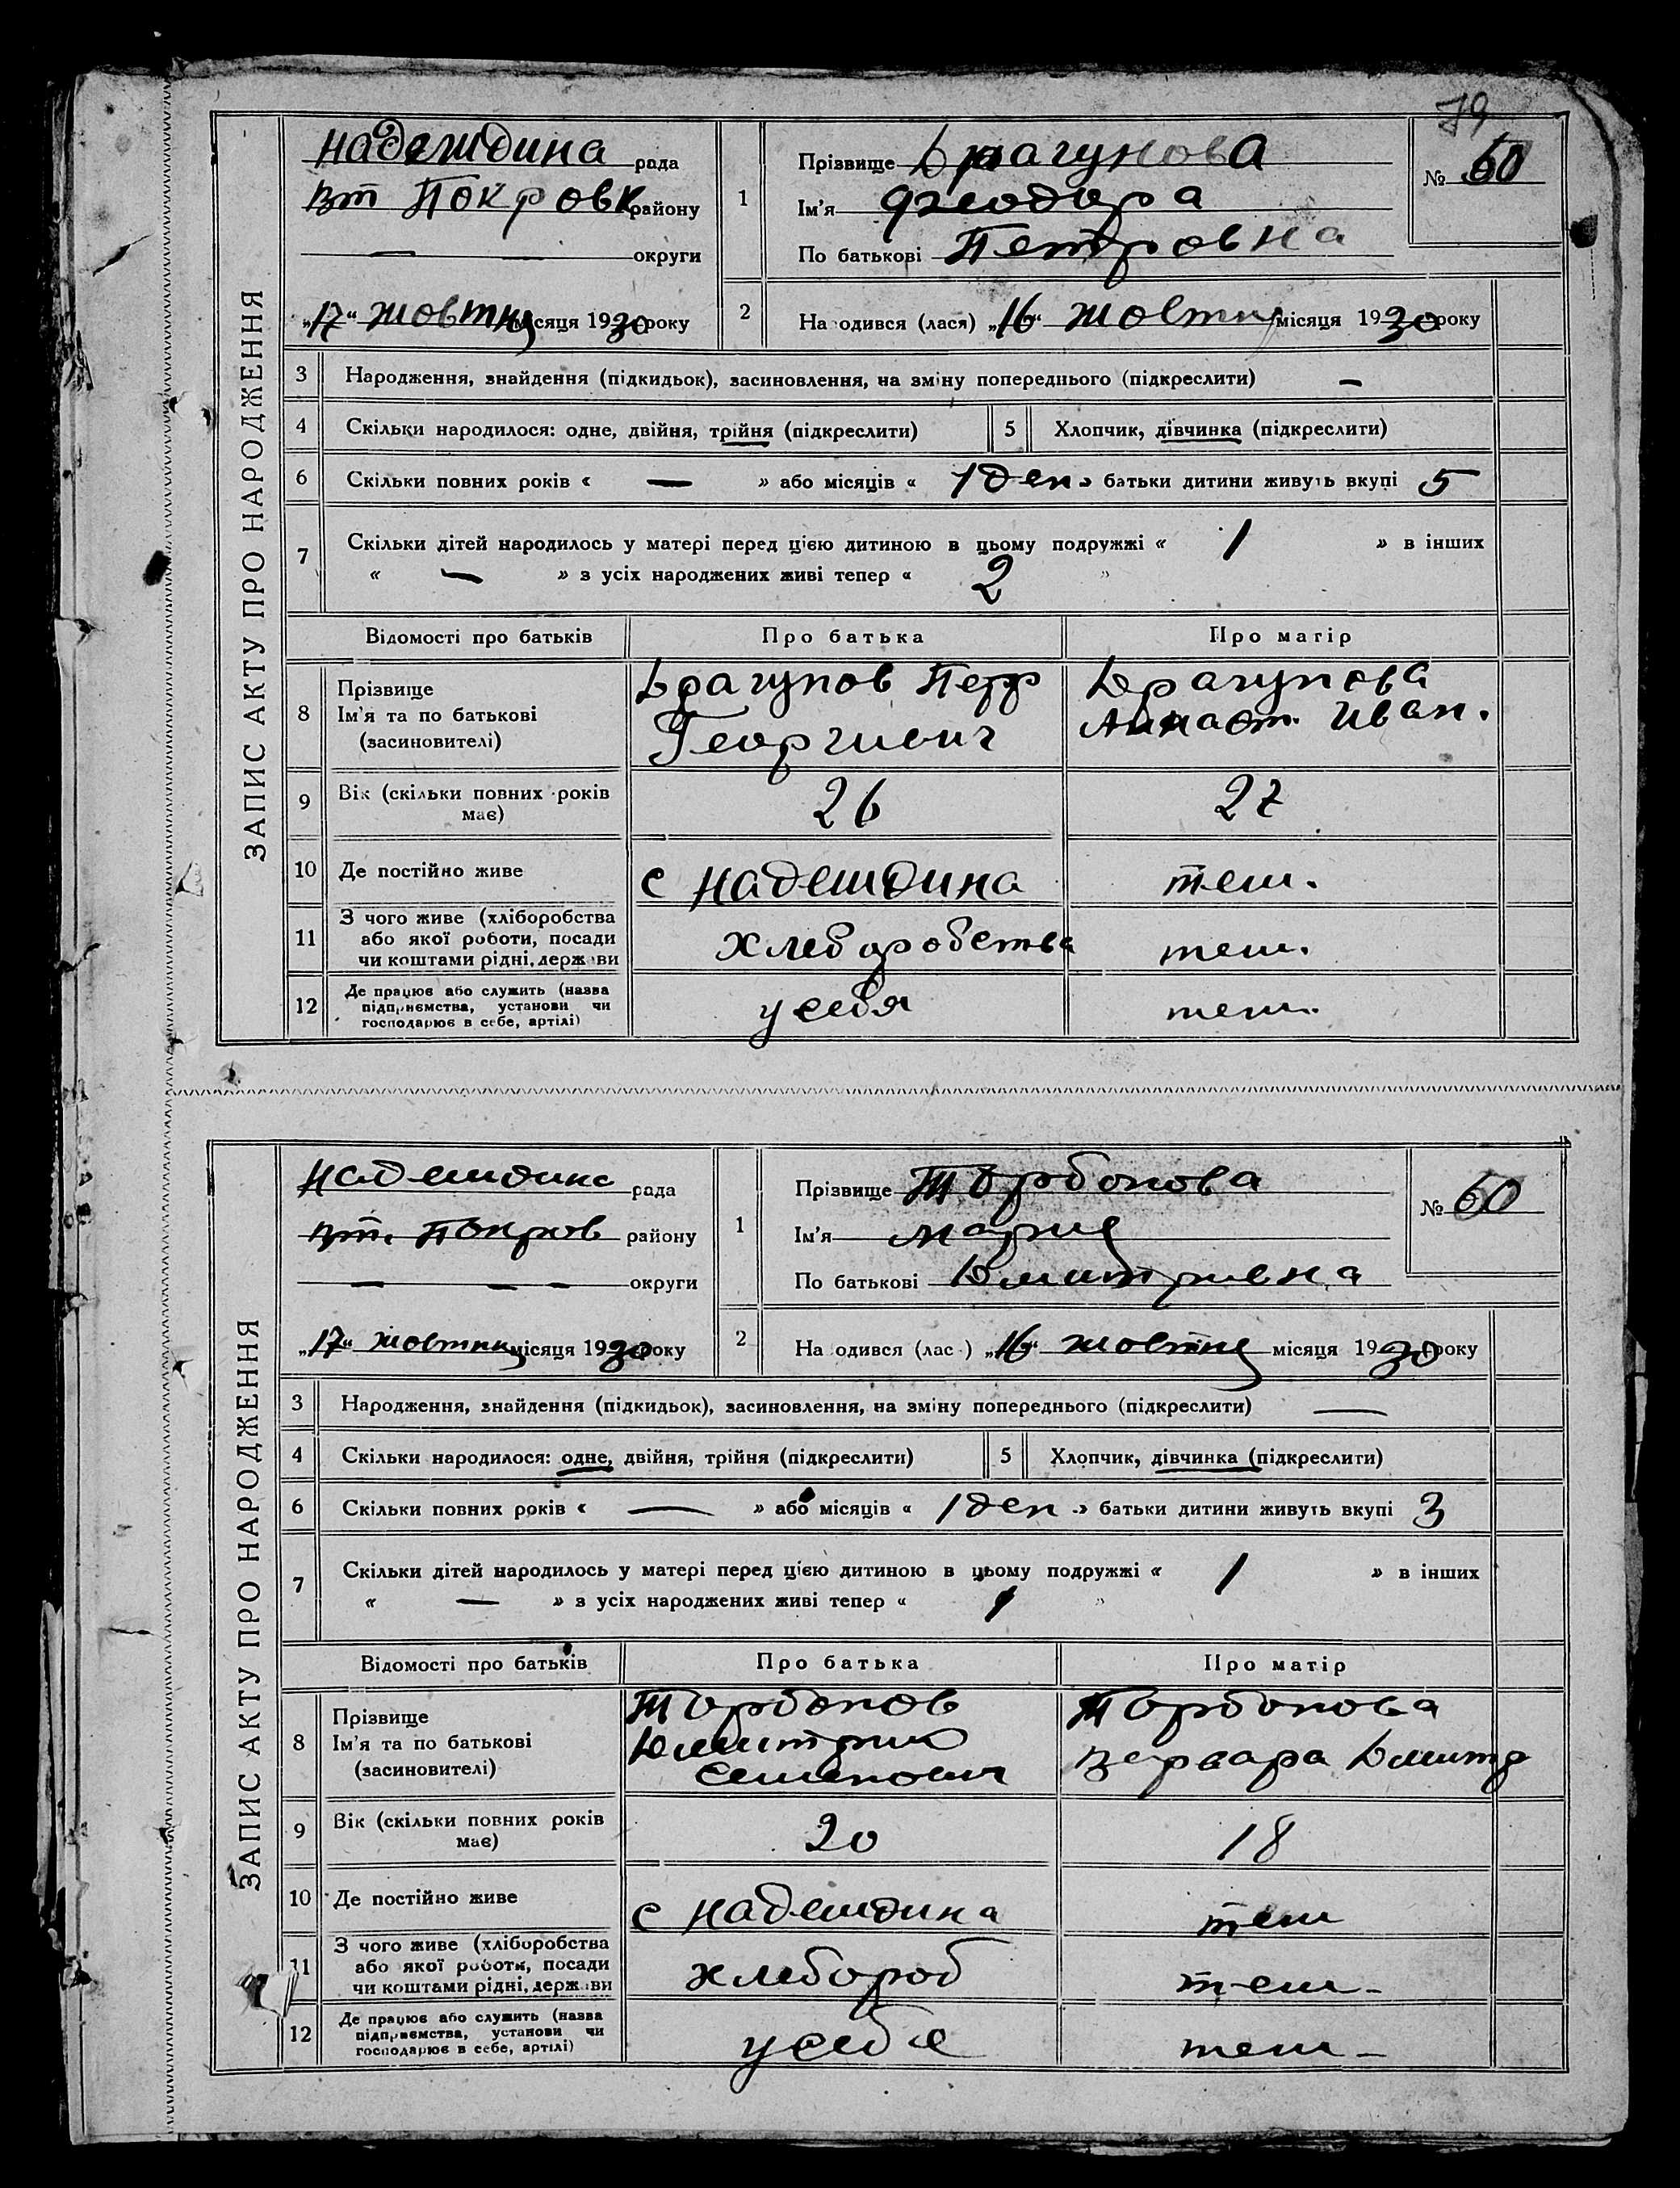 79
ЗАПИС АКТУ ПРО НАРОДЖЕННЯ
Надеждина рада
Вт Покровк району
— — округи
„17“ жовтня місяця 1930 року
1
Прізвище Драгунова
Ім'я Феодора
По батькові Петровна
№ 60
2 На одився (лася) „16“ жовтня місяця 1930 року
3 Народження, знайдення (підкидьок), засиновлення, на зміну попереднього (підкреслити) —
4 Скільки народилося: одне, двійня, трійня (підкреслити) 5 Хлопчик, дівчинка (підкреслити)
6 Скільки повних років « — » або місяців « 1 ден » батьки дитини живуть вкупі 5
7 Скільки дітей народилось у матері перед цією дитиною в цьому подружжі « 1 » в інших
« — » з усіх народжених живі тепер « 2 »
Відомості про батьків Про батька Про матір
8 Прізвище Ім'я та по батькові (засиновителі)
Драгунов Петр Георгиевич
Драгунова Анаст. Иван.
9 Вік (скільки повних років має) 26 27
10 Де постійно живе с Надеждина теж.
11 З чого живе (хліборобства або якої роботи, посади чи коштами рідні, держави хлеборобства теж.
12 Де працює або служить (назва підприємства, установи чи господарює в себе, артілі) у себя теж.
ЗАПИС АКТУ ПРО НАРОДЖЕННЯ
Надеждина рада
Вт. Покров району
— — — округи
„17“ жовтня місяця 1930 року
1
Прізвище Торбонова
Ім'я Мария
По батькові Дмитриевна
№ 60
2 На одився (лас ) „16“ жовтня місяця 1930 року
3 Народження, знайдення (підкидьок), засиновлення, на зміну попереднього (підкреслити) —
4 Скільки народилося: одне, двійня, трійня (підкреслити) 5 Хлопчик, дівчинка (підкреслити)
6 Скільки повних років « — » або місяців « 1 ден » батьки дитини живуть вкупі 3
7 Скільки дітей народилось у матері перед цією дитиною в цьому подружжі « 1 » в інших
« — » з усіх народжених живі тепер « 1 »
Відомості про батьків Про батька Про матір
8 Прізвище Ім'я та по батькові (засиновителі)
Торбонов Дмитрий Семенович
Торбонова Варвара Дмитр
9 Вік (скільки повних років має) 20 18
10 Де постійно живе с Надеждина теж
11 З чого живе (хліборобства або якої роботи, посади чи коштами рідні, держави хлебороб теж
12 Де працює або служить (назва підприємства, установи чи господарює в себе, артілі) у себе теж